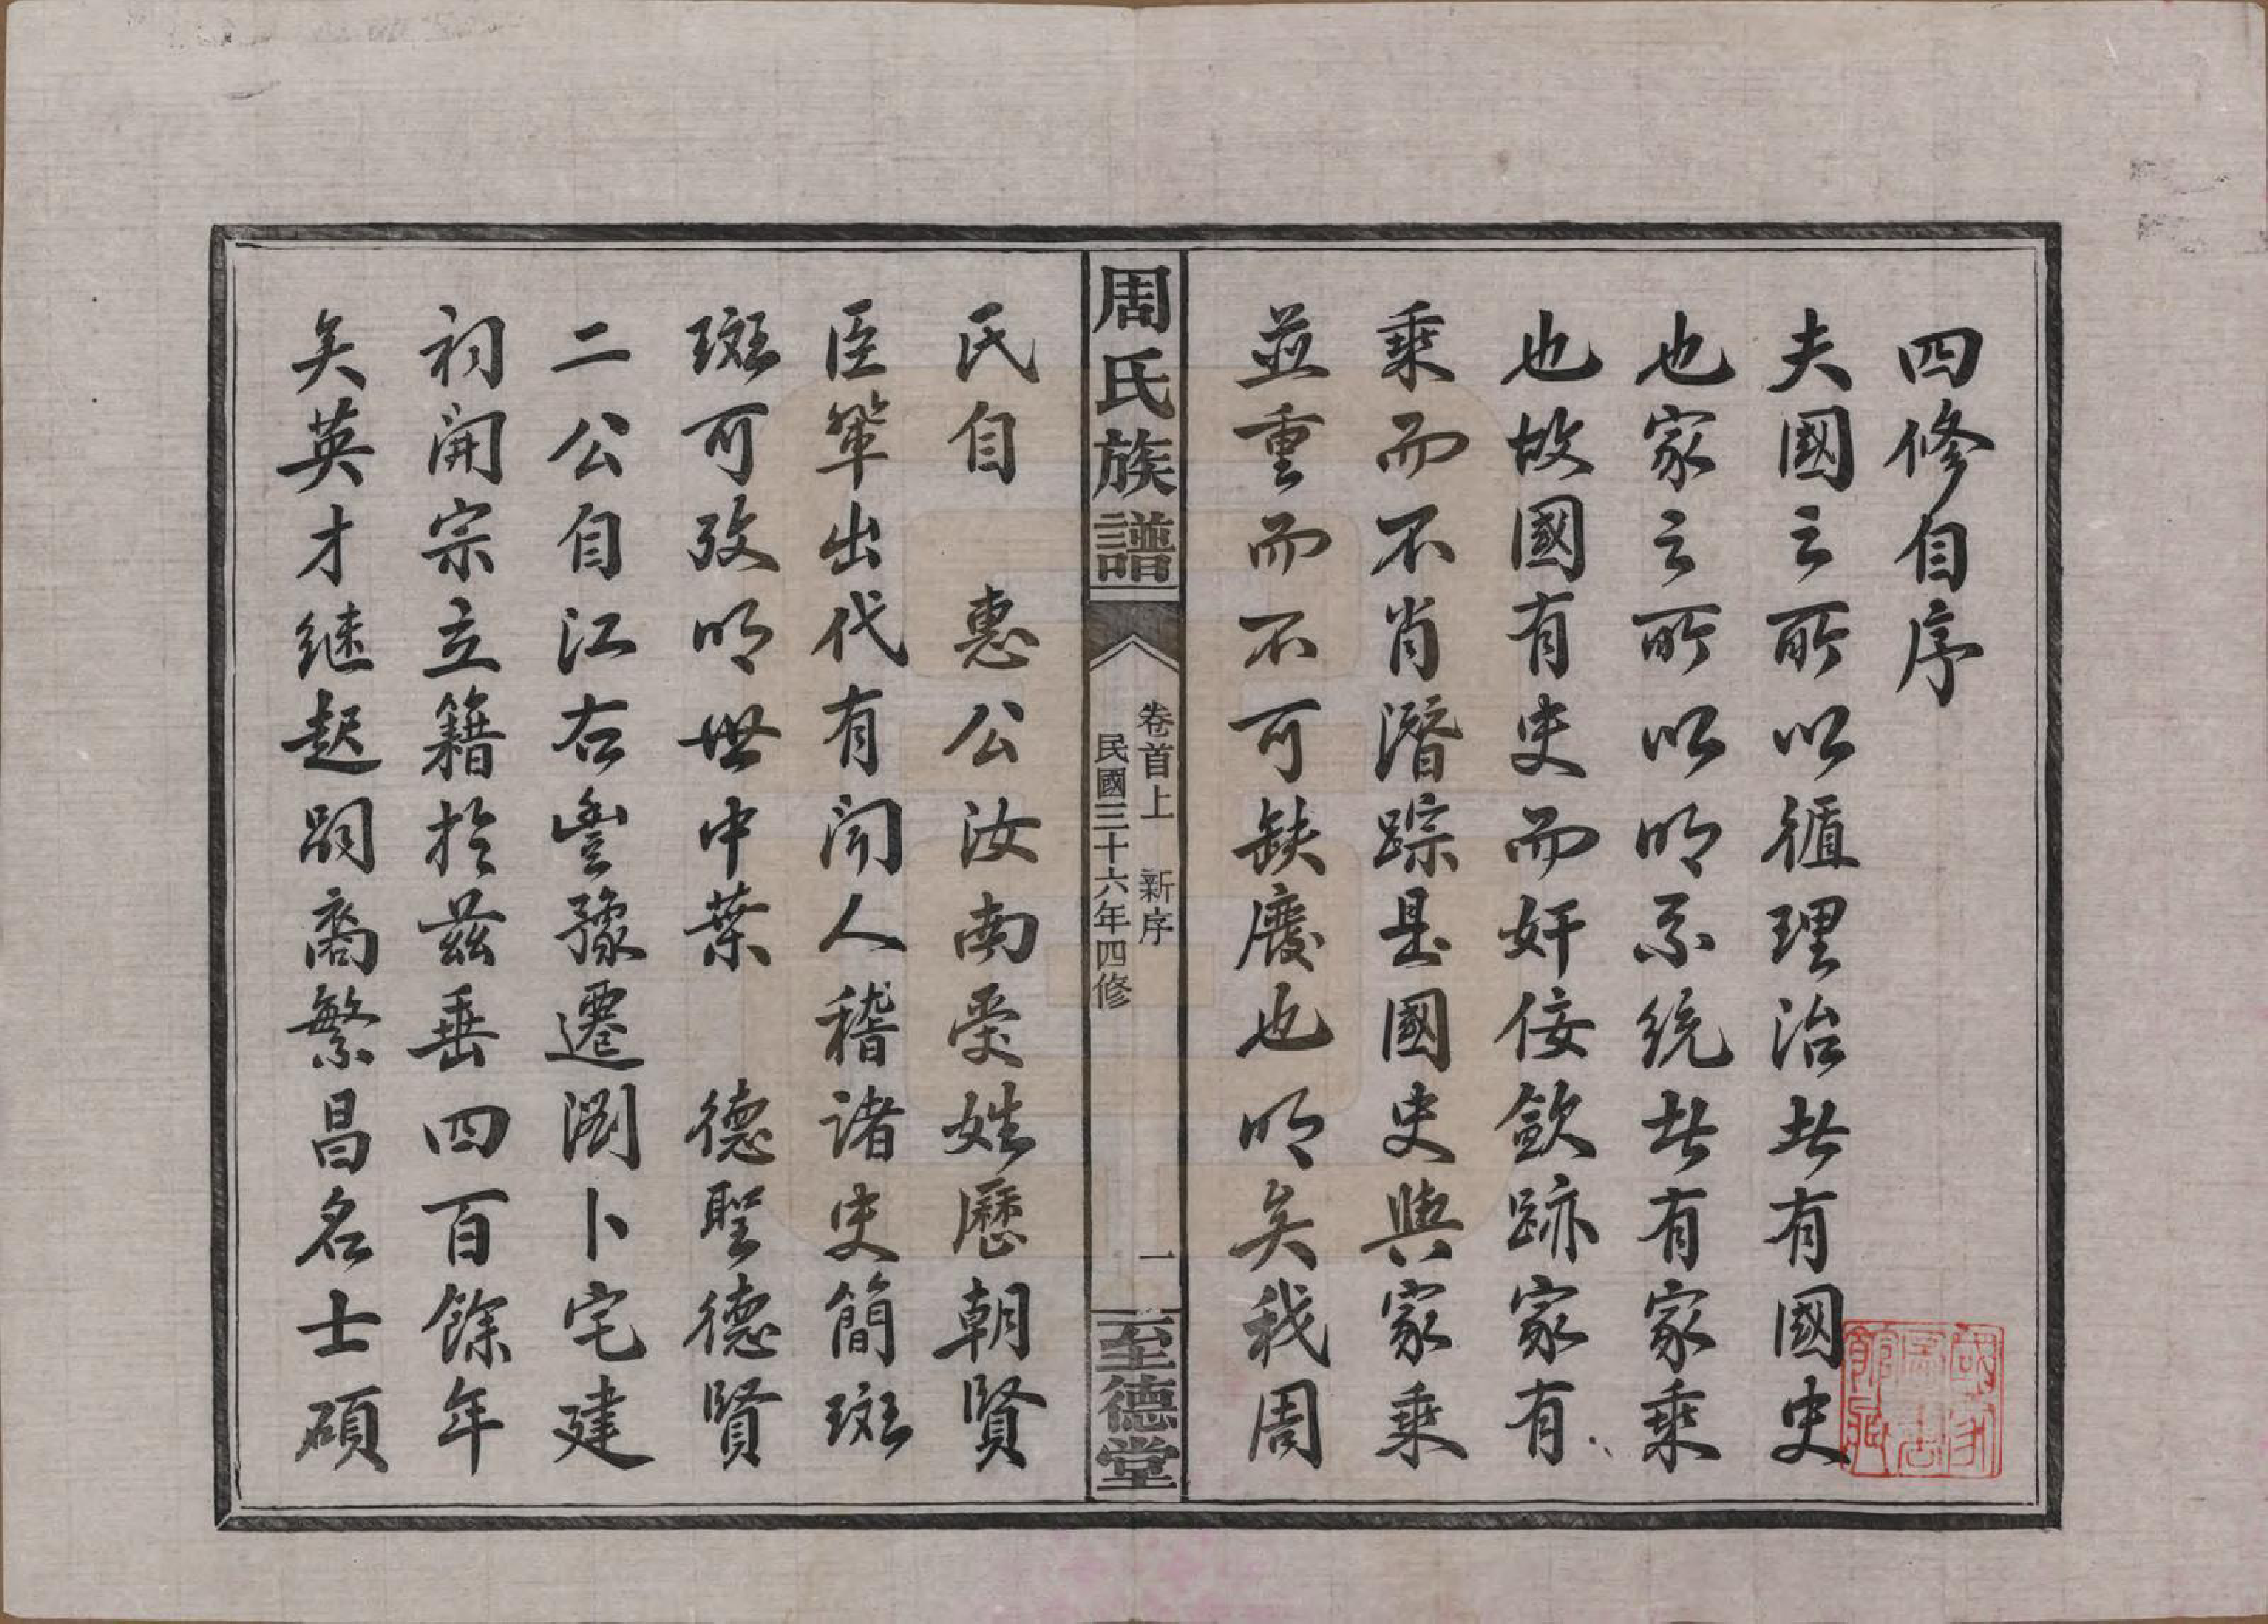 四修自序
夫國之所以循理治者有國史
也家之所以明系統者有家乘
也故國有史而奸佞斂跡家有
乘而不肖潛踪是國史與家乘
並重而不可缺廢也明矣我周
周氏族譜
卷首上 新序 一
民國三十六年四修
至德堂
氏自 惠公汝南受姓歷朝賢
臣輩出代有聞人稽諸史簡斑
斑可攷明世中葉 德聖德賢
二公自江右豐豫遷瀏卜宅建
祠開宗立籍於茲垂四百餘年
矣英才继起嗣裔繁昌名士碩
國家圖書館藏